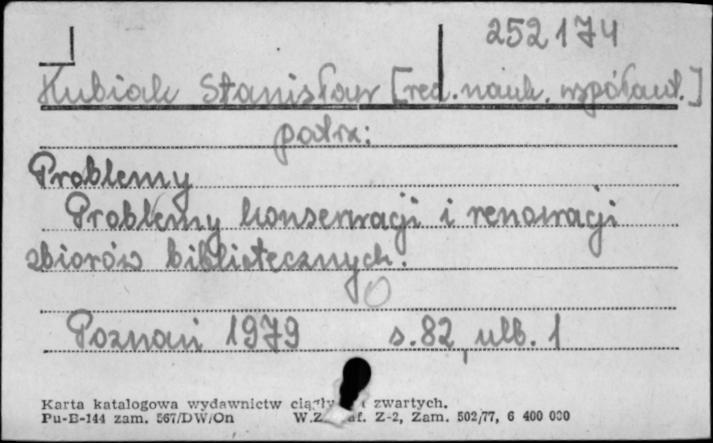 252174
Kubiak Stanisław [red. nauk. współaut.]
patrz:
Problemy
Problemy konserwacji i renowacji
zbiorów bibliotecznych.
Poznań 1979 s. 82, ulb. 1
Karta katalogowa wydawnictw zwartych.
Pu-B-144 zam. 567/DW/On W.Z. Z-2, Zam. 502/77, 6 400 000